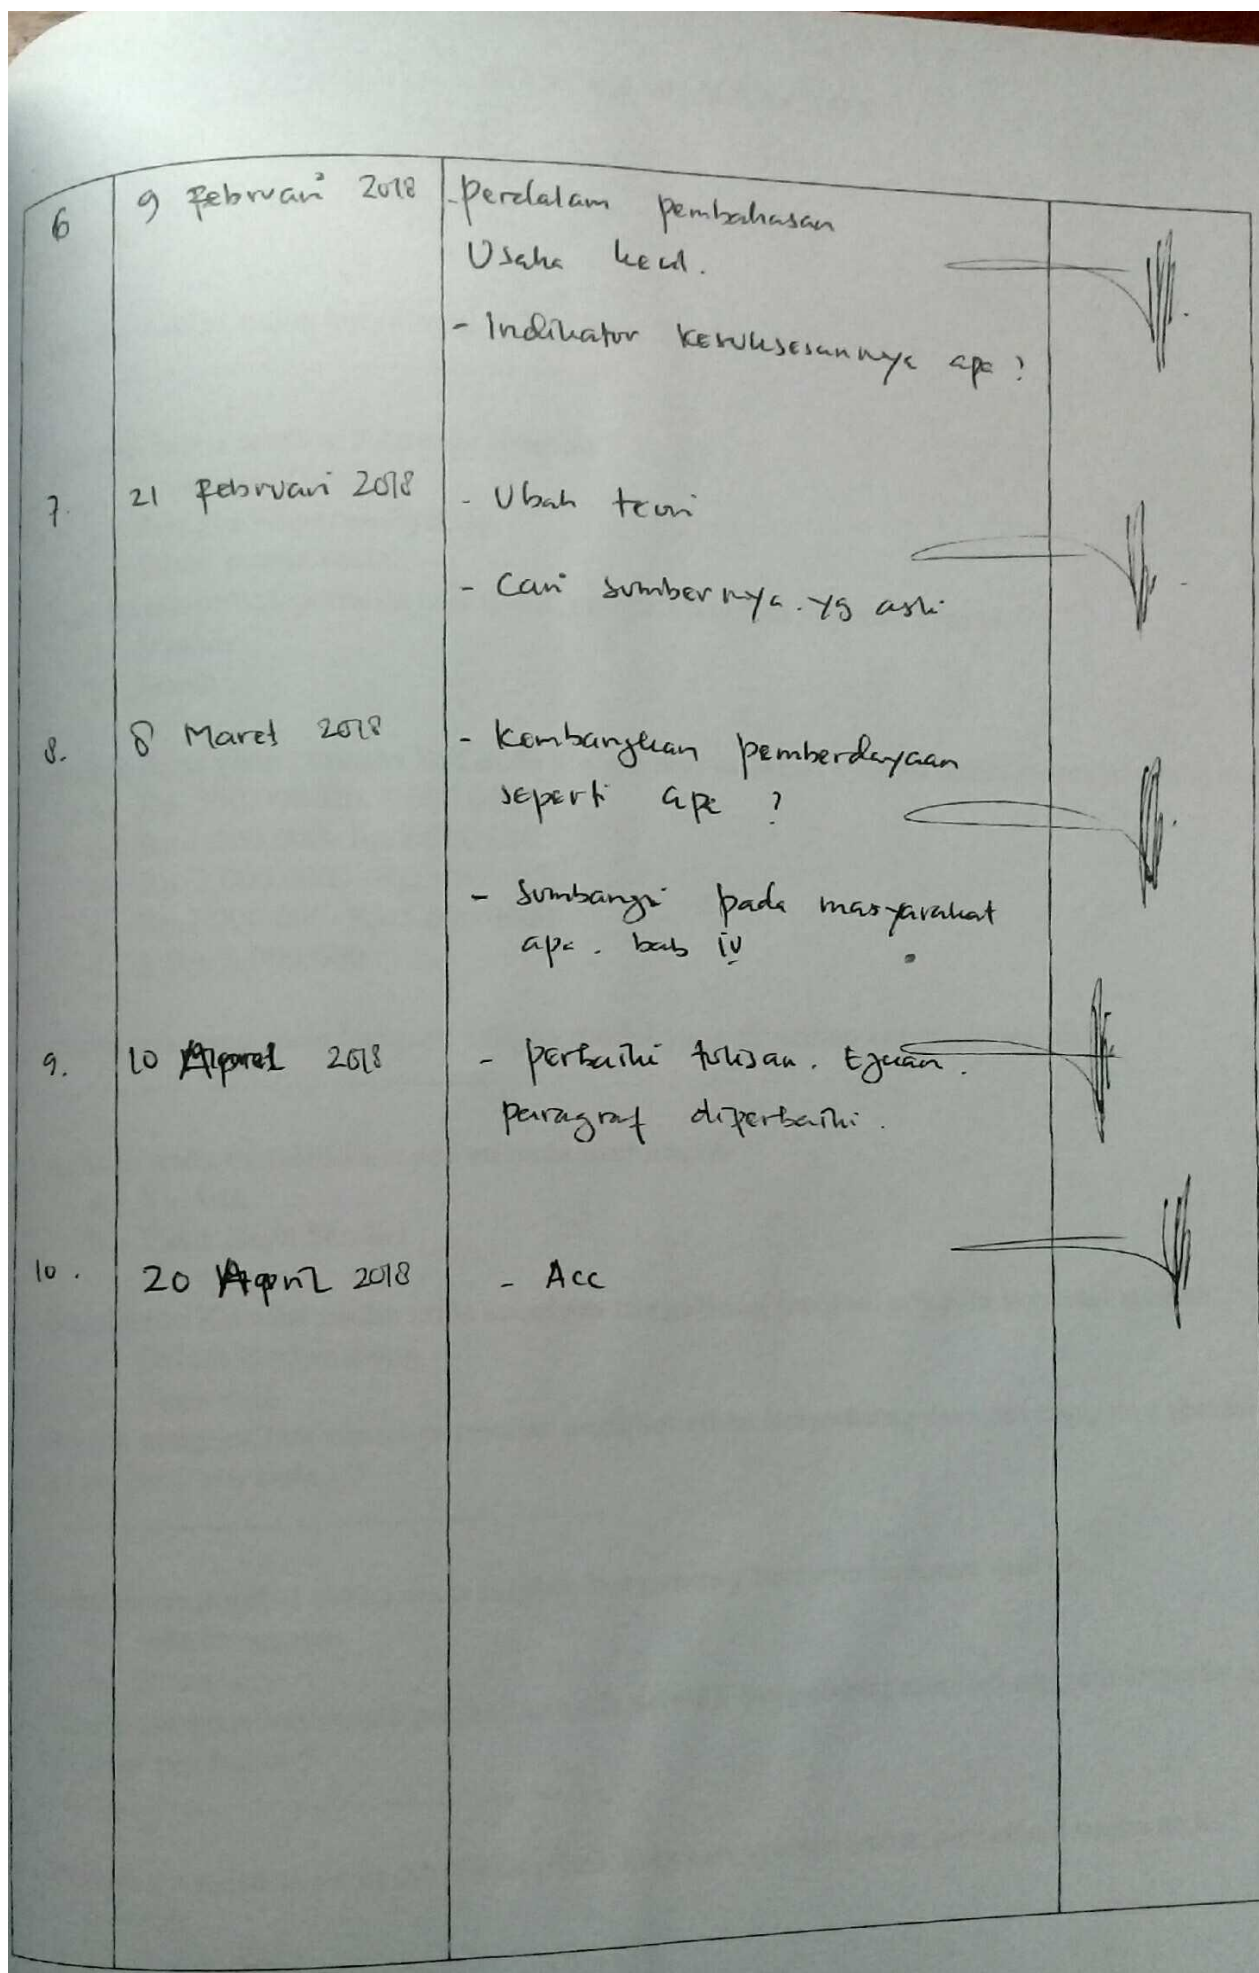 6 9 Februari 2018 - Perdalam pembahasan
Usaha kecil.
- Indikator kesuksesannya apa ?
7. 21 Februari 2018 - Ubah teori
- Cari sumbernya. yg asli
8. 8 Maret 2018 - Kembangkan pemberdayaan
seperti apa ?
- Sumbangsi pada masyarakat
apa. bab iv
9. 10 April 2018 - perbaiki tulisan. Ejaan.
paragraf diperbaiki.
10. 20 April 2018 - Acc